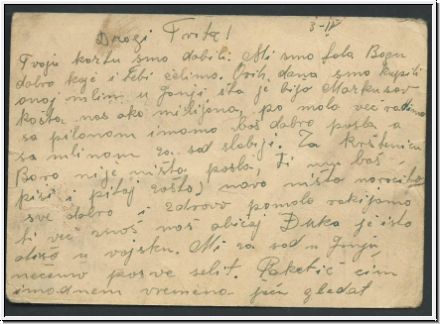 3-II
Dragi Fritz!
Tvoju kartu smo dobili. Mi smo fala Bogu
dobro koje i Tebi želimo. Ovih dana smo kupili
onaj mlin u Gunji šta je bijo Markusov
košta nas oko milijona, po malo već radimo
sa pilanom imamo baš dobro posla a
sa mlinom za sad slabije. Za krštenicu
Boro nije ništa posla, Ti mu baš
piši i pitaj zašto, novo ništa naročito
sve dobro i zdravo pomalo rakijamo
ti već znaš naš običaj Duka je isto
otišo u vojsku. Mi za sad u Gunju
nećemo posve selit. Paketić čim
imadnem vremena ću gledat